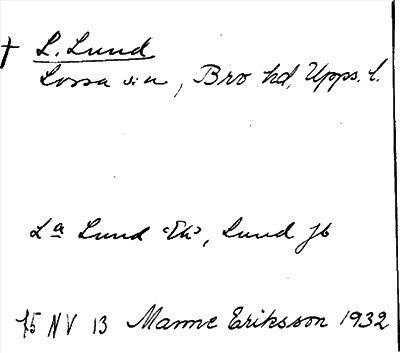 † L. Lund
Lossa sn, Bro hd, Upps. l.
La Lund Ek, Lund Jb
f5 NV 13 Manne Eriksson 1932